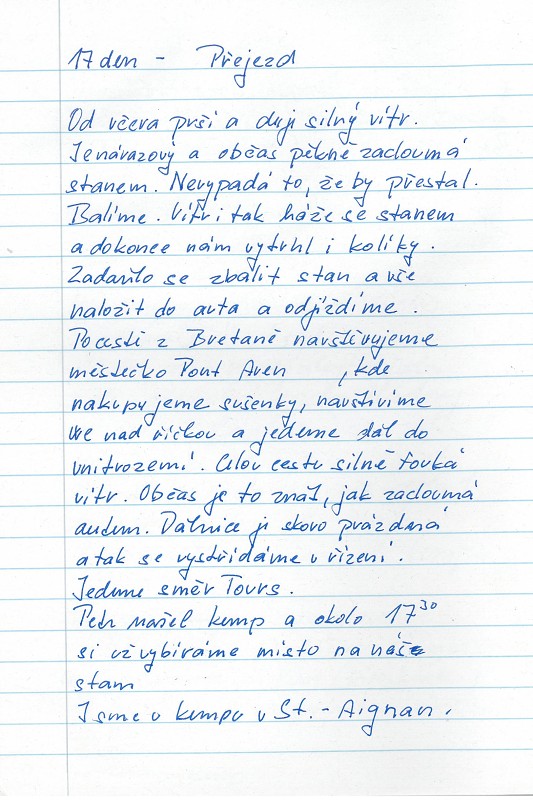 17 den - Přejezd
Od včera prší a duje silný vítr.
Je nárazový a občas pěkně zacloumá
stanem. Nevypadá to, že by přestal.
Balíme. Vítr i tak háže se stanem
a dokonce nám vytrhl i kolíky.
Zadařilo se zbalit stan a vše
naložit do auta a odjíždíme.
Po cestě z Bretaně navštívujeme
městečko Pont Aven , kde
nakupujeme sušenky, navštívíme
nad říčkou a jedeme dál do
vnitrozemí. Celou cestu silně fouká
vítr. Občas je to znát, jak zacloumá
autem. Dálnice je skoro prázdná
a tak se vystřídáme v řízení.
Jedeme směr Tours.
Petr našel kemp a okolo 17³⁰
si už vybíráme místo na náš
stan
Jsme v kempu v St.-Aignan.